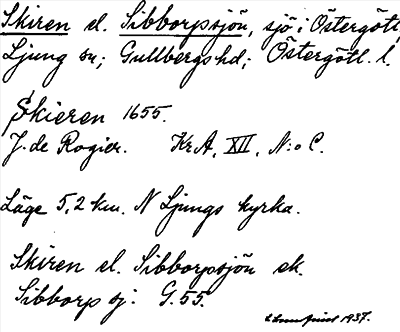 Skiren el. Sibborpsjön, sjö i Östergötl.
Ljung sn; Gullbergs hd; Östergötl. l.
Skieren 1655.
J. de Rogier. KrA, XII, N:o C.
Läge 5,2 km. N Ljungs kyrka.
Skiren el. Sibborpsjön ek.
Sibborp sj: G. 55.
1937.